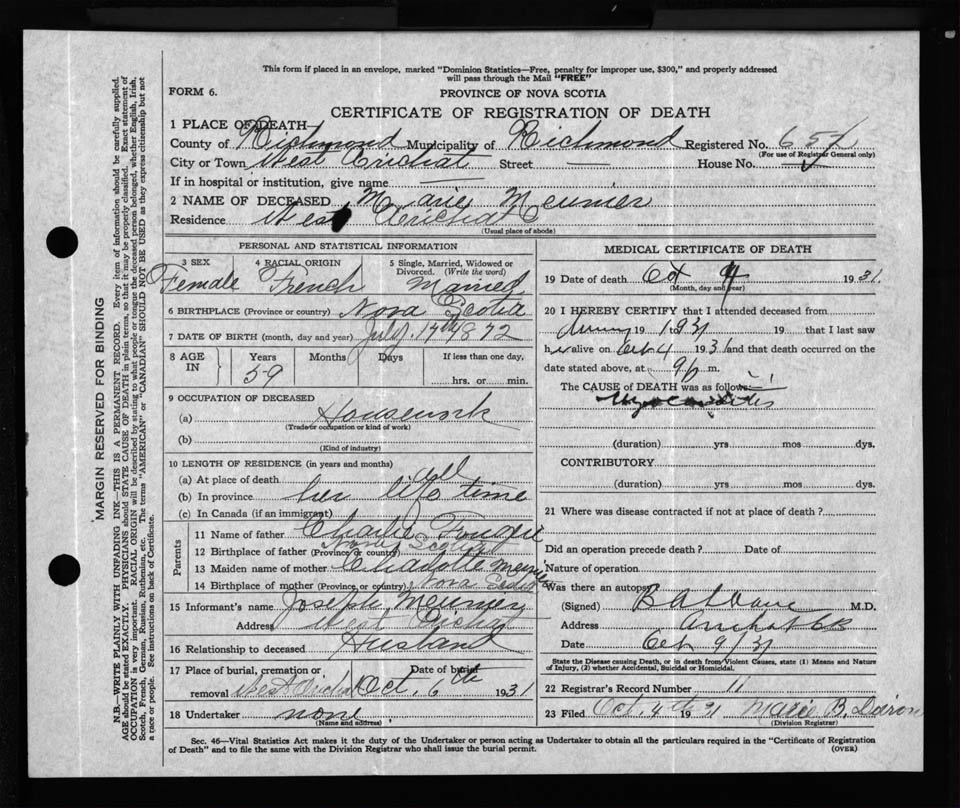 This form if placed in an envelope, marked "Dominion Statistics—Free, penalty for improper use, $300," and properly addressed
will pass through the Mail "FREE"
FORM 6.
PROVINCE OF NOVA SCOTIA
CERTIFICATE OF REGISTRATION OF DEATH
1 PLACE OF DEATH
County of Richmond Municipality of Richmond Registered No. 657
(For use of Registrar General only)
City or Town West Arichat Street — House No.
If in hospital or institution, give name —
2 NAME OF DECEASED Marie Meunier
Residence West Arichat
(Usual place of abode)
PERSONAL AND STATISTICAL INFORMATION
3 SEX 4 RACIAL ORIGIN 5 Single, Married, Widowed or
Divorced. (Write the word)
Female French Married
6 BIRTHPLACE (Province or country) Nova Scotia
7 DATE OF BIRTH (month, day and year) July 14th 1872
8 AGE IN Years Months Days If less than one day,
59 hrs. or min.
9 OCCUPATION OF DECEASED
(a) Housework
(Trade or occupation or kind of work)
(b)
(Kind of industry)
10 LENGTH OF RESIDENCE (in years and months)
(a) At place of death all
(b) In province her life time
(c) In Canada (if an immigrant)
Parents
11 Name of father Charlie
12 Birthplace of father (Province or country) Nova Scotia
13 Maiden name of mother Charlotte
14 Birthplace of mother (Province, or country) Nova Scotia
15 Informant's name Joseph Meunier
Address West Arichat
16 Relationship to deceased Husband
17 Place of burial, cremation or Date of burial
removal West Arichat Oct. 6th 1931
18 Undertaker none
(Name and address)
MEDICAL CERTIFICATE OF DEATH
19 Date of death Oct 4 1931.
(Month, day and year)
20 I HEREBY CERTIFY that I attended deceased from
19 1931 19 that I last saw
her alive on Oct 4 1931 and that death occurred on the
date stated above, at 9 p m.
The CAUSE of DEATH was as follows:
Myocarditis
(duration) yrs mos dys.
CONTRIBUTORY
(duration) yrs mos dys.
21 Where was disease contracted if not at place of death?
Did an operation precede death? Date of
Nature of operation
Was there an autopsy
(Signed) M.D.
Address Arichat
Date Oct 9/31
State the Disease causing Death, or in death from Violent Causes, state (1) Means and Nature
of Injury, (2) whether Accidental, Suicidal or Homicidal.
22 Registrar's Record Number 11
23 Filed Oct. 4th 1931 Marie B.
(Division Registrar)
Sec. 46—Vital Statistics Act makes it the duty of the Undertaker or person acting as Undertaker to obtain all the particulars required in the "Certificate of Registration
of Death" and to file the same with the Division Registrar who shall issue the burial permit. (OVER)
MARGIN RESERVED FOR BINDING
N.B.—WRITE PLAINLY WITH UNFADING INK—THIS IS A PERMANENT RECORD. Every item of information should be carefully supplied.
AGE should be stated EXACTLY. PHYSICIANS should STATE CAUSE OF DEATH in plain terms, so that it may be properly classified. Exact statement of
OCCUPATION is very important. RACIAL ORIGIN will be described by stating to what people or tongue the deceased person belonged, whether English, Irish,
Scotch, French, German, Russian, Ruthenian, etc. The terms "AMERICAN" or "CANADIAN" SHOULD NOT BE USED as they express citizenship but not
a race or people. See instructions on back of Certificate.